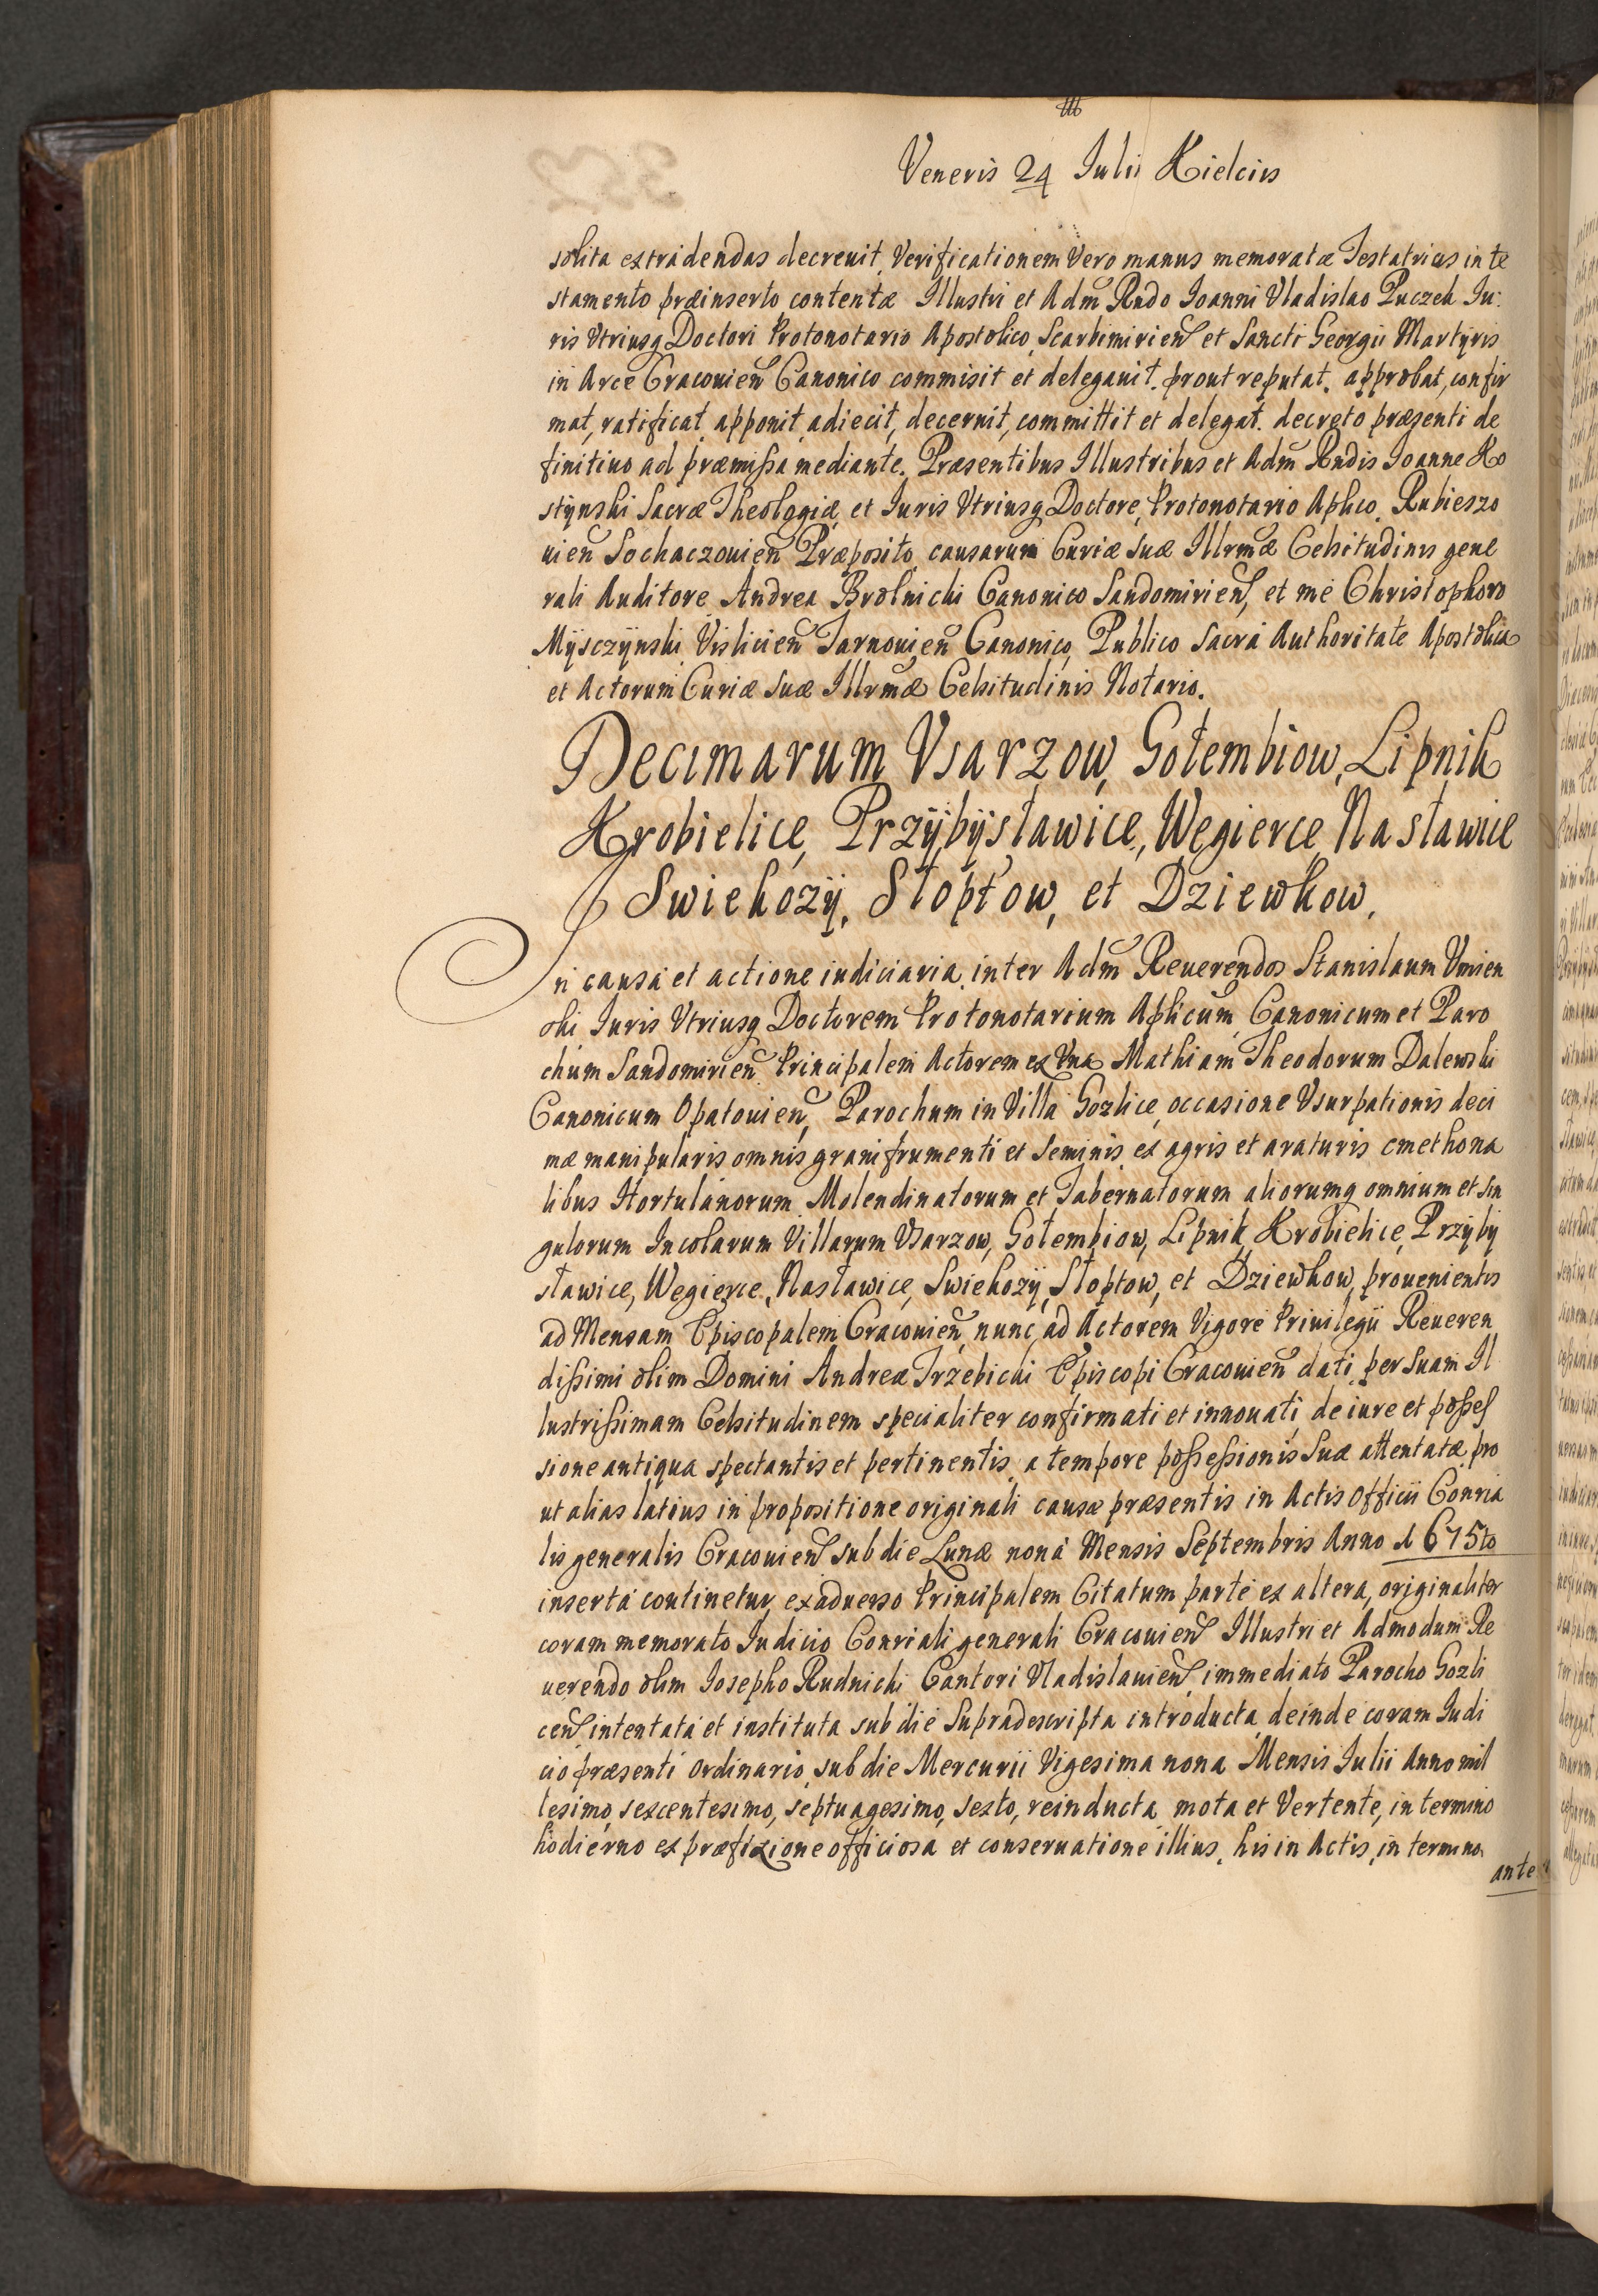 Veneris 24 Iulii Kielciis
solita extradendas decreuit, Verificationem Vero manus memoratæ Testatricis in te
stamento præinserto contentæ Illustri et Adm̃ Rndo Ioanni Vladislao Puczek Iu:
ris Vtriusq Doctori Protonotario Apostolico, Scarbimirien̄ et Sancti Georgii Martyris
in Arce Cracouien̄ Canonico commisit et delegauit. prout reputat. approbat, confir
mat, ratificat apponit, adiecit, decernit, committit et delegat. decreto præsenti de
finitiuo ad præmissa mediante. Præsentibus Illustribus et Adm̃ Rndis Ioanne Ko
stÿnski Sacræ Theologiæ, et Iuris Vtriusq Doctore, Protonotario Aplico. Rubieszo
uien̄ Sochaczouien̄ Præposito, causarum Curiæ Suæ Illrmæ Celsitudinis gene
rali Auditore, Andrea Brolnicki Canonico Sandomirien̄, et me Christophoro
Mÿsczÿnski Vislicien̄ Tarnouien̄ Canonico, Publico Sacrá Authoritate Apostolica
et Actorum Curiæ Suæ Illrmæ Celsitudinis Notario.
Decimarum Vsarzow, Gołembiow, Lipnik
Krobielice, Przÿbÿsławice, Wegierce, Nasławice
Swiekozÿ, Słoptow, et Dziewkow,
In causa et actione iudiciaria inter Adm̃ Reuerendos Stanislaum Vmien
ski Iuris Vtriusq Doctorem Protonotarium Aplicum, Canonicum et Paro
chum Sandomirien̄ Principalem Actorem ex Vna Mathiam Theodorum Dalewski
Canonicum Opatouien̄, Parochum in Villa Gozlice, occasione Vsurpationis deci
mæ manipularis omnis grani frumenti et seminis ex agris et araturis cmethona
libus Hortulanorum Molendinatorum et Tabernatorum aliorumq omnium et sin
gulorum Incolarum Villarum Vsarzow, Gołembiow, Lipnik, Krobielice, Przÿbÿ
sławice, Wegierce, Nasławice, Swiekozÿ, Słoptow, et Dziewkow, prouenientis
ad Mensam Episcopalem Cracouien̄, nunc ad Actorem Vigore Priuilegii Reueren
dissimi olim Domini Andreæ Trzebicki Episcopi Cracouien̄ dati, per Suam Il
lustrissimam Celsitudinem specialiter confirmati et innouati de iure et posses
sione antiqua spectantis et pertinentis, a tempore possessionis Suæ attentatæ, pro
ut alias latius in propositione originali causæ præsentis in Actis Officii Conria
lis generalis Cracouien̄ sub die Lunæ nona Mensis Septembris Anno 1675to
inserta continetur, ex aduerso Principalem Citatum parte ex altera, originaliter
coram memorato Iudicio Conriali generali Cracouien̄ Illustri et Admodum Re
uerendo olim Iosepho Rudnicki Cantori Vladislauien̄, immediato Parocho Gozli
cen̄ intentata et instituta sub die Supradescripta introducta, deinde coram Iudi
cio præsenti Ordinario, sub die Mercurii Vigesima nona Mensis Iulii Anno mil
lesimo, sexcentesimo, septuagesimo, sexto, reinducta, mota et Vertente, in termino
hodierno ex præfixione officiosa et conseruatione illius, his in Actis, in termino
ante